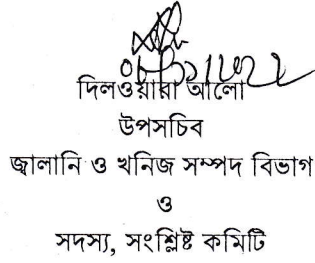 দিলওয়ারা আলো
উপসচিব
জ্বালানি ও খনিজ সম্পদ বিভাগ
ও
সদস্য, সংশ্লিষ্ট কমিটি